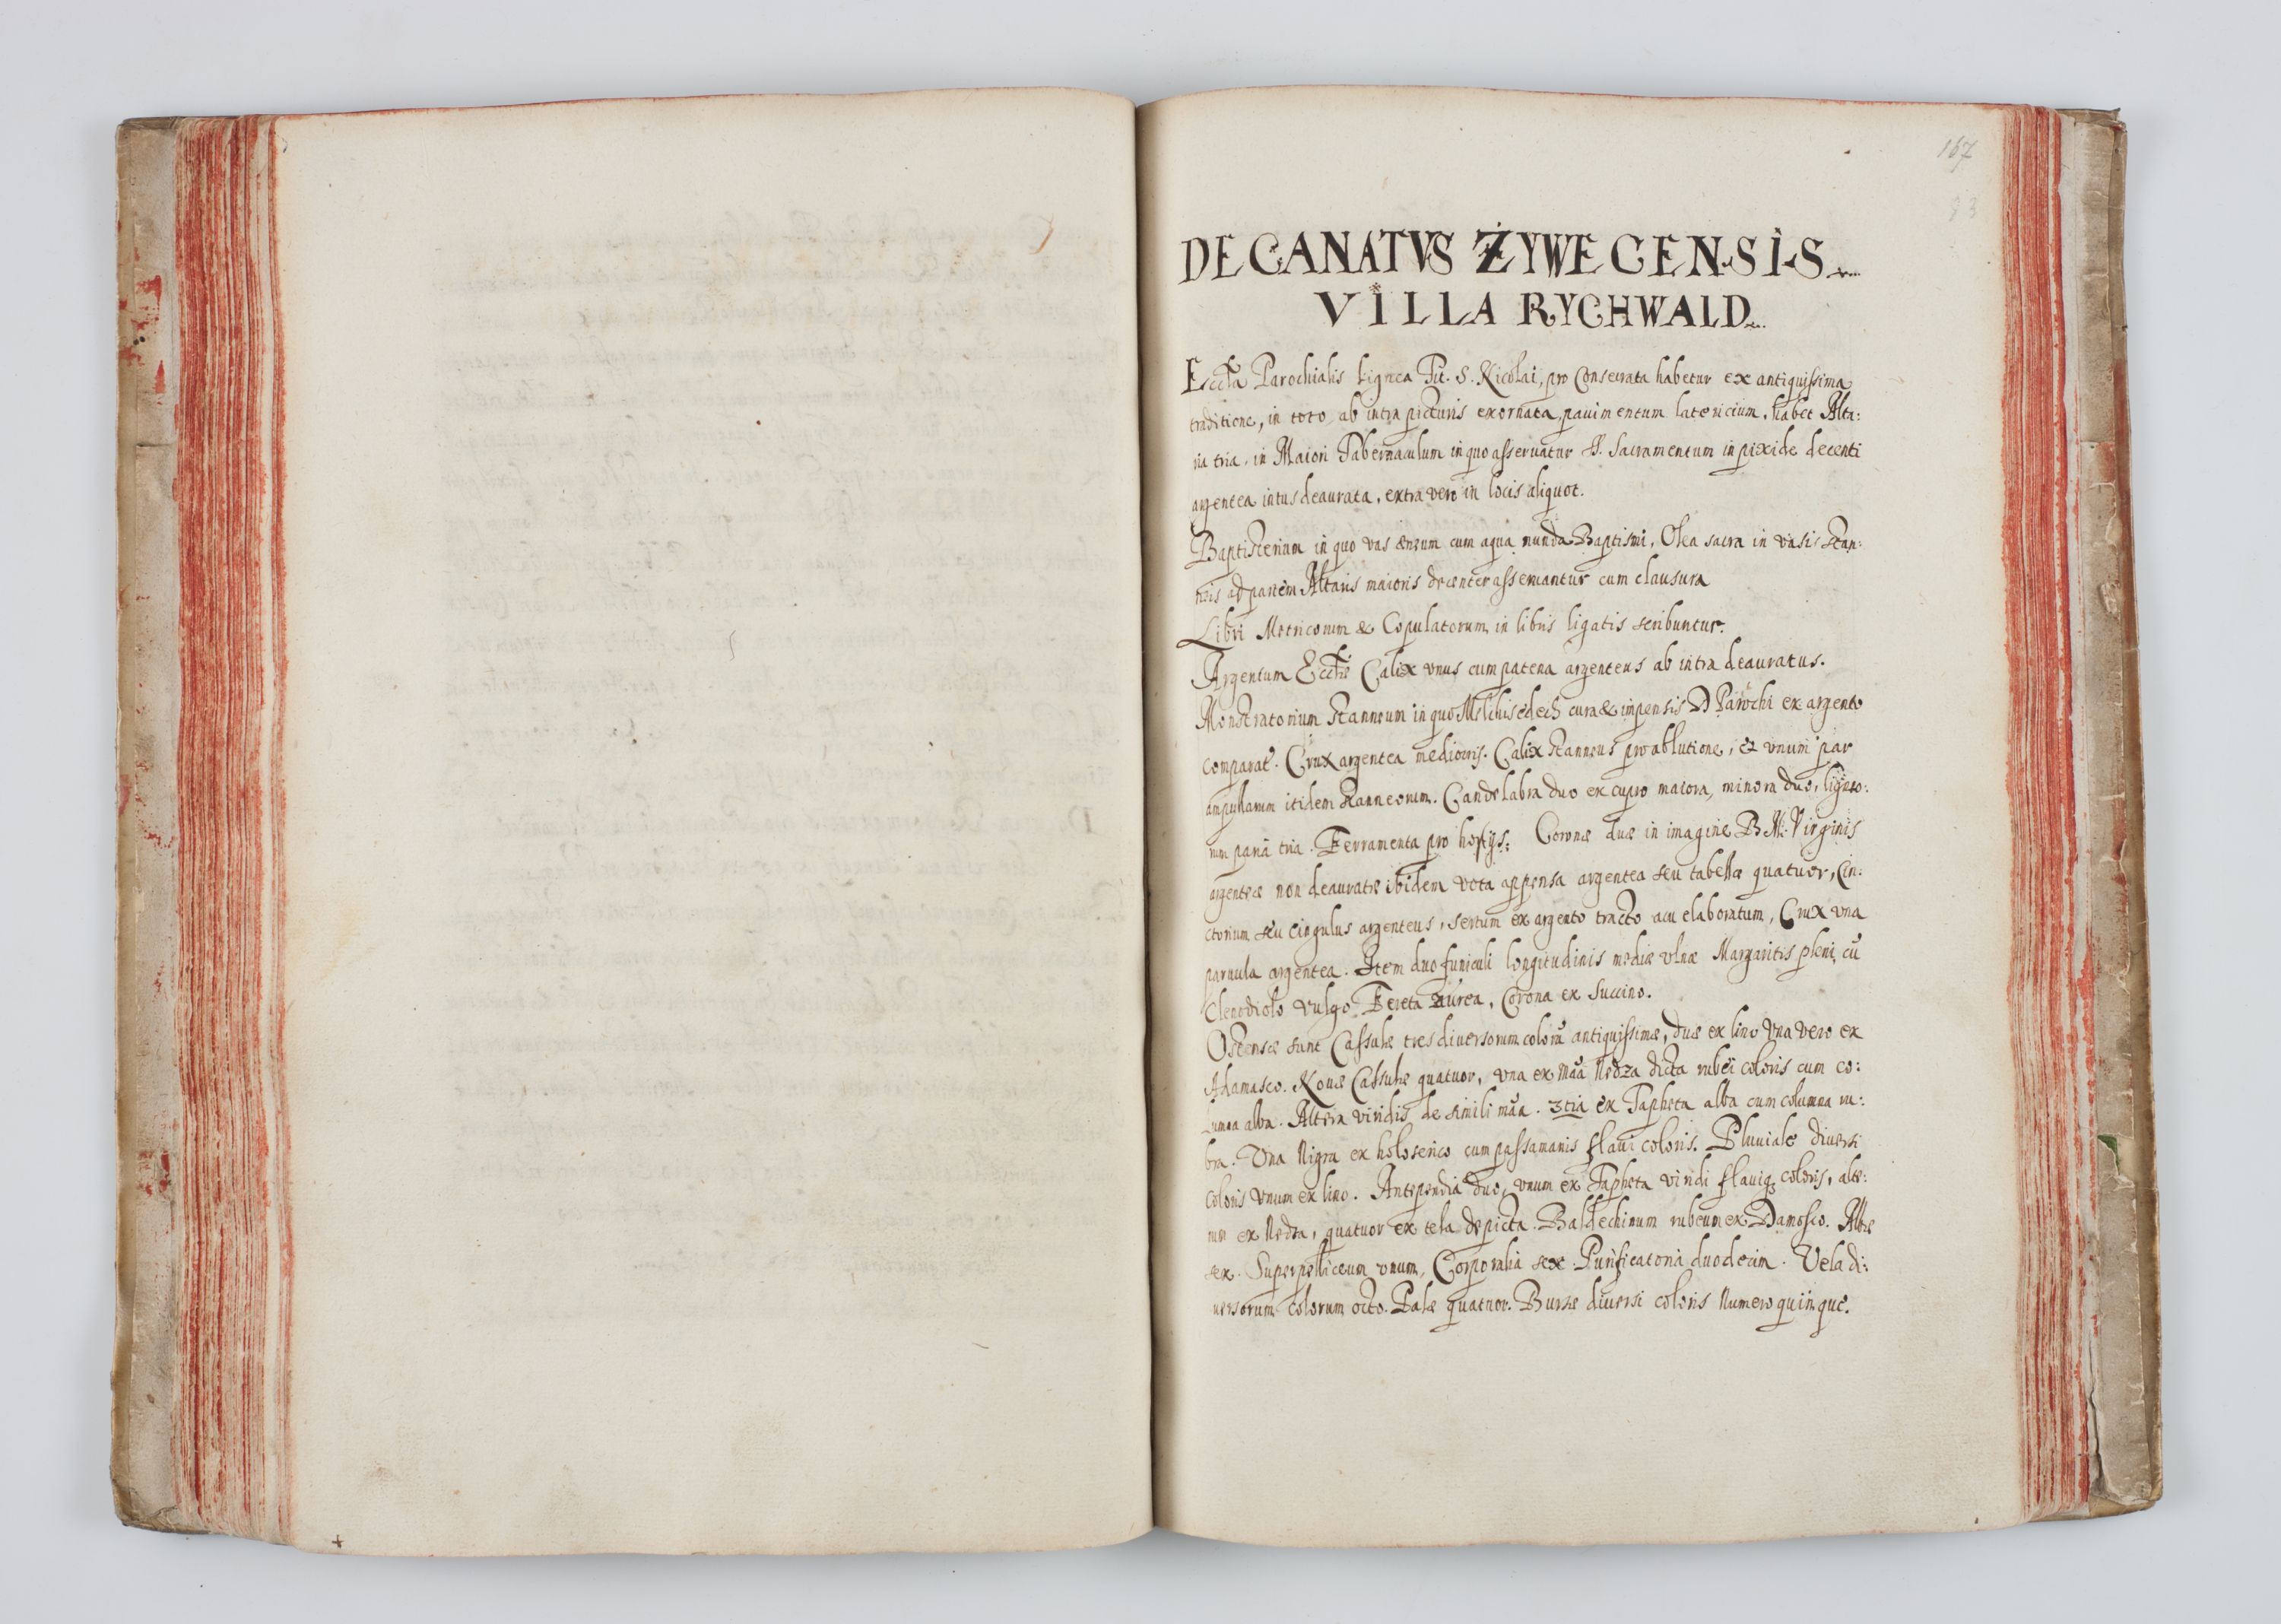 167
83
DECANATVS ŻYWECENSIS
VILLA RYCHWALD
Eccľa Parochialis Lignea Tit. S. Nicolai, pro Consecrata habetur ex antiquissima
traditione, in toto ab intra picturis exornata, pauimentum latericium, habet Alta:
ria tria, in Maiori Tabernaculum in quo asseruatur S. Sacramentum in pixide decenti
argentea intus deaurata, extra vero in locis aliquot.
Baptisterium in quo vas æneum cum aqua munda Baptismi, Olea sacra in vasis stan:
neis ad partem Altaris maioris decenter asseruantur cum clausura
Libri Metricorum & Copulatorum in libris ligatis scribuntur.
Argentum Eccľæ Calix vnus cum patena argenteus ab intra deauratus.
Monstratorium stanneum in quo Melchisedech cura & impensis D Parochi ex argento
comparat. Crux argentea mediocris. Calix stanneus pro ablutione, et vnum par
ampullarum itidem stanneorum. Candelabra duo ex cupro maiora, minora duo, ligneo:
rum paria tria. Ferramenta pro hostijs. Coronæ duæ in imagine B. M. Virginis
argenteæ non deauratæ ibidem vota appensa argentea seu tabellæ quatuor, Cin:
ctorium seu cingulus argenteus, sertum ex argento tracto acu elaboratum, Crux vna
paruula argentea. Item duo funiculi longitudinis mediæ vlnæ Margaritis pleni, cũ
Clenodiolo vulgo Fereta aurea, Corona ex Succino.
Ostensæ sunt Cassulæ tres diuersorum colorũ antiquissimæ, duæ ex lino Vna vero ex
Adamasco. Nouæ Cassulæ quatuor, vna ex mãa Nedza dicta rubei coloris cum co:
lumna alba. Altera viridis de simili mãa. 3tia ex Tapheta alba cum columna ru:
bra. Vna Nigra ex holoserico cum passamanis flaui coloris. Pluuiale diuersi
Coloris vnum ex lino. Antependia duo, vnum ex Tapheta viridi flauiq3 coloris, alte:
rum ex Nedza, quatuor ex tela depicta. Baldechinum rubeum ex Damasco. Albæ
sex. Superpelliceum vnum, Corporalia sex. Purificatoria duodecim. Vela di:
uersorum colorum octo. Palæ quatuor. Bursæ diuersi coloris Numero quinque.